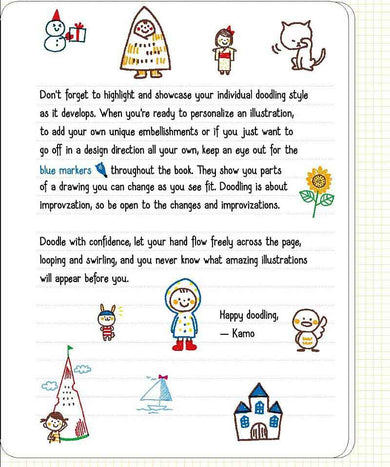 Don't forget to highlight and showcase your individual doodling style
as it develops. When you're ready to personalize an illustration,
to add your own unique embellishments or if you just want to
go off in a design direction all your own, keep an eye out for the
blue markers throughout the book. They show you parts
of a drawing you can change as you see fit. Doodling is about
improvzation, so be open to the changes and improvizations.
Doodle with confidence, let your hand flow freely across the page,
looping and swirling, and you never know what amazing illustrations
will appear before you.
Happy doodling,
— Kamo